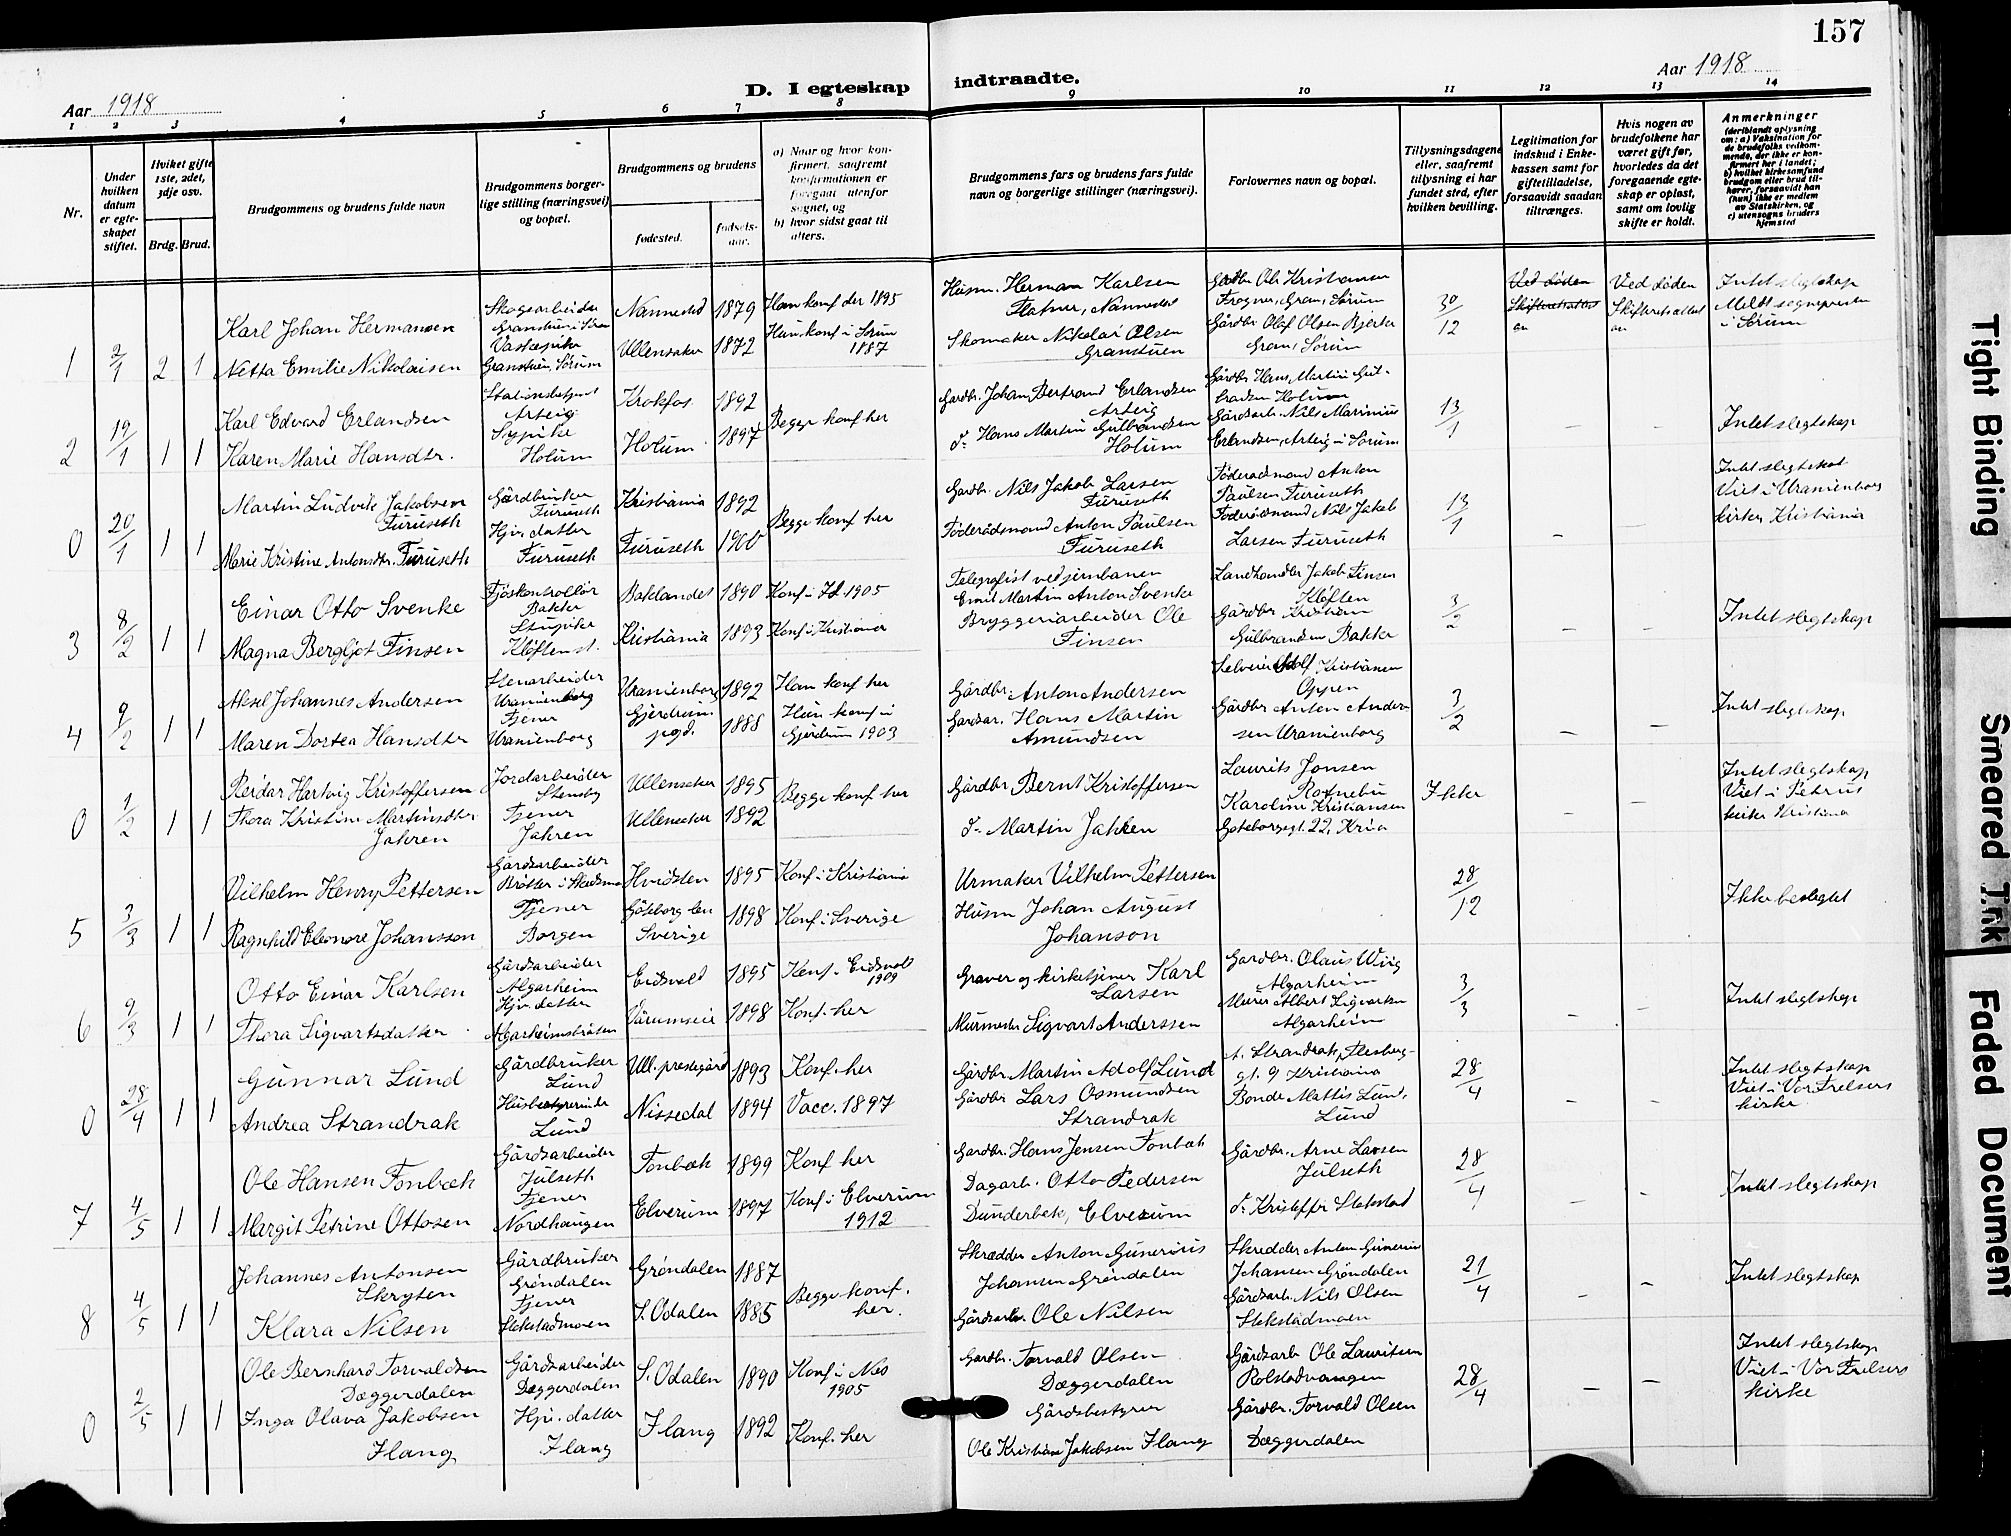 157
Aar 1918
D. I egteskap indtraadte.
Aar 1918
1 2 3 4 5 6 7 8 9 10 11 12 13 14
Nr.
Under hvilken datum er egteskapet stiftet.
Hvilket gifte 1ste, 2det, 3dje osv.
Brdg. Brud.
Brudgommens og brudens fulde navn
Brudgommens borgerlige stilling (næringsvei) og bopæl.
Brudgommens og brudens
fødested.
fødselsaar.
a) Naar og hvor konfirmert, saafremt konfirmationen er foregaat utenfor sognet, og
b) hvor sidst gaat til alters.
Brudgommens fars og brudens fars fulde navn og borgerlige stillinger (næringsvei).
Forlovernes navn og bopæl.
Tillysningsdagene eller, saafremt tillysning ei har fundet sted, efter hvilken bevilling.
Legitimation for indskud i Enkekassen samt for giftetilladelse, forsaavidt saadan tiltrænges.
Hvis nogen av brudefolkene har været gift før, hvorledes da det foregaaende egteskap er opløst, samt om lovlig skifte er holdt.
Anmerkninger
(deriblandt oplysning om: a) Vaksination for de brudefolks vedkommende, der ikke er konfirmert her i landet; b) hvilket kirkesamfund brudgom eller brud tilhører, forsaavidt han (hun) ikke er medlem av Statskirken, og c) utensogns bruders hjemsted
1 2/1 2 1
Karl Johan Hermansen
Netta Emilie Nikolaisen
Skogsarbeider
Granstuen i Sørum
Vaskepike
Granstuen, Sørum
Nannestad 1879
Ullensaker 1872
Han konf der 1895
Hun konf i Sørum
1887
Husm. Herman Karlsen
Flatner, Nannestad
Skomaker Nikolai Olsen
Granstuen
Gårdbr Ole Kristiansen
Frogner, Gran, Sørum
Gårdbr Olaf Olsen Bjerke
Gran, Sørum
30/12
Ved døden
Skifteretsattest
Ved døden
Skifteretsattest
Intet slegtskap
Meldt sognepresten
i Sørum
2 19/1 1 1
Karl Edvard Erlandsen
Karen Marie Hansdtr.
Stationsbetjent
Arteig
Sypike
Holum
Krokfos 1892
Holum 1897
Begge konf her
Gardbr. Johan Bertrand Erlandsen
Arteig
d- Hans Martin Gulbrandsen
Holum
Gårdbr Hans Martin Gulbrandsen Holum
Gårdsarb. Nils Marinius
Erlandsen, Arteig i Sørum
13/1 – –
Intet slegtskap
0 20/1 1 1
Martin Ludvik Jakobsen
Furuseth
Marie Kristine Antonsdtr. Furuseth
Gårdbruker
Furuseth
Hjv. datter
Furuseth
Kristiania 1892
Furuseth 1900
Begge konf her
Gardbr. Nils Jakob Larsen
Furuseth
Føderådsmand Anton Paulsen
Furuseth
Føderådsmand Anton
Paulsen Furuseth
Føderådsmand Nils Jakob
Larsen Furuseth
13/1 – –
Intet slegtskab
Viet i Uranienborg
kirke, Kristiania
3 8/2 1 1
Einar Otto Svenke
Magna Bergljot Finsen
Fjøskontrollør
Bakke
Stupike
Kløften st.
Baklandet 1890
Kristiania 1893
Konf i 1905
Konf i Kristiania
Telegrafist ved jernbanen
Emil Martin Anton Svenke
Bryggeriarbeider Ole
Finsen
Landhandler Jakob Finsen
Kløften
Gårdbr. Kristian
Gulbrandsen Bakke
3/2 – –
Intet slegtskap
4 9/2 1 1
Aksel Johannes Andersen
Maren Dortea Hansdtr
Stenarbeider
Uranienborg
Tjener
Uranienborg
Uranienborg 1892
Gjerdrum
pgd. 1888
Han konf her
Hun konf i
Gjerdrum 1903
Gårdbr. Anton Andersen
Gardsar. Hans Martin
Amundsen
Selveier Adolf Kristiansen
Oppen
Gårdbr Anton Andersen Uranienborg
3/2 – –
Intet slegtskap
0 1/2 1 1
Reidar Hartvig Kristoffersen
Thora Kristine Martinsdtr
Jahren
Jordarbeider
Stensby
Tjener
Jahren
Ullensaker 1895
Ullensaker 1892
Begge konf her
Gårdbr Bernt Kristoffersen
d- Martin Jahren
Laurits Jonsen
Rotnebu
Karoline Kristiansen
Gøteborggt. 22, Kria
Ikke – –
Intet slegtskap
Viet i Petrus
kirke Kristiania
5 3/3 1 1
Vilhelm Henry Pettersen
Ragnhild Eleonore Johansson
Gårdsarbeider
Brøtter i Skedsmo
Tjener
Borgen
Hvidsten 1895
Gøteborg len
Sverige 1898
Konf i Kristiania
Konf i Sverige
Urmaker Vilhelm Pettersen
Husm Johan August
Johanson
28/12 – –
Ikke beslegtet
6 9/3 1 1
Otto Einar Karlsen
Thora Sigvartsdatter
Gårdsarbeider
Algarheim
Hjv. datter
Algarheimsbråten
Eidsvold 1895
Vårumseie 1898
Konf. Eidsvold
1909
Konf. her
Graver og kirketjener Karl
Larsen
Murmester Sigvart Anderssen
Gardbr. Olaus Wiig
Algarheim
Murer Albert Sigvartsen
Algarheim
3/3 – –
Intet slegtskap
0 28/4 1 1
Gunnar Lund
Andrea Strandrak
Gårdbruker
Lund
Husbestyrerinde
Lund
Ull. prestegård 1893
Nissedal 1894
Konf. her
Vacc. 1897
Gårdbr. Martin Adolf Lund
Gårdbr Lars Osmundsen
Strandrak
A. Strandrak, Flesberggt. 9 Kristiania
Bonde Mattis Lund,
Lund
28/4 – –
Intet slegtskap
Viet i Vor Frelsers
kirke
7 4/5 1 1
Ole Hansen Fonbæk
Margit Petrine Ottosen
Gårdsarbeider
Julseth
Tjener
Nordhaugen
Fonbæk 1899
Elverum 1897
Konf her
Konf i Elverum
1912
Gardbr. Hans Jensen Fonbæk
Dagarb. Otto Pedersen
Dunderbek, Elverum
Gårdbr. Arne Larsen
Julseth
d- Kristoffer Stekstad
28/4 – –
Intet slegtskap
8 4/5 1 1
Johannes Antonsen
Skrysen
Klara Nilsen
Gårdbruker
Grøndalen
Tjener
Stekstadmoen
Grøndalen 1887
S. Odalen 1885
Begge konf.
her.
Skrædder Anton Gunerius
Johansen Grøndalen
Gårdsarb. Ole Nilsen
Skredder Anton Gunerius
Johansen Grøndalen
Gårdsarb. Nils Olsen
Stekstadmoen
21/4 – –
Intet slegtskap
0 2/5 1 1
Ole Bernhard Torvaldsen
Dæggerdalen
Inga Olava Jakobsen
Ilang
Gårdsarbeider
Dæggerdalen
Hjv. datter
Ilang
S. Odalen 1890
Ilang 1892
Konf i Nes
1905
Konf. her
Gardbr. Torvald Olsen
Dæggerdalen
Gårdsbestyrer
Ole Kristian Jakobsen Ilang
Gårdsarb Ole Lauritsen
Rolstadvangen
Gårdbr. Torvald Olsen
Dæggerdalen
28/4 – –
Intet slegtskap
Viet i Vor Frelsers
kirke
Tight Binding
Smeared Ink
Faded Document